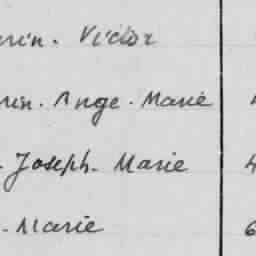 rin. Victor
rin. Ange. Marie
. Joseph. Marie 4
. Marie 6